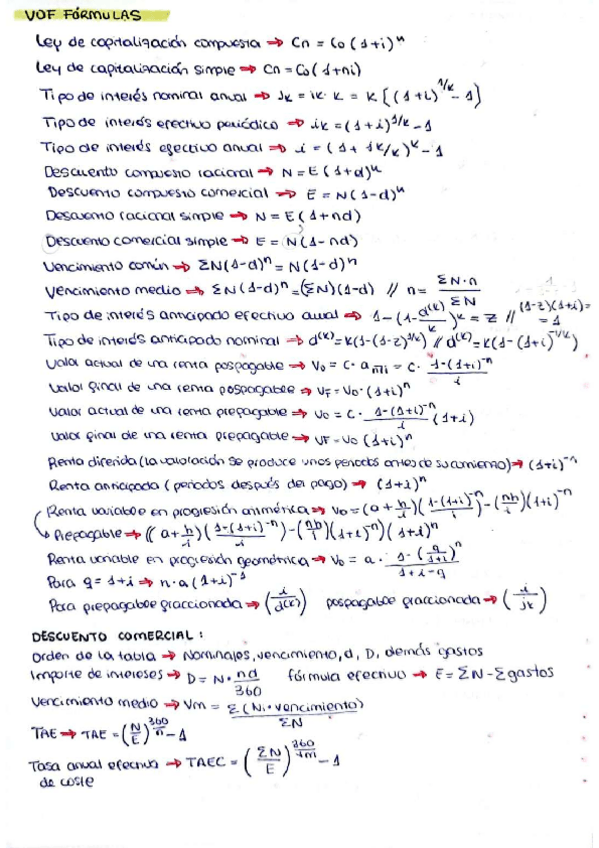 VOF FÓRMULAS
Ley de capitalización compuesta → Cn = Co (1+i)^n
Ley de capitalización simple → Cn = Co (1+ni)
Tipo de interés nominal anual → Jk = ik · k = k [(1+i)^1/k - 1]
Tipo de interés efectivo periódico → ik = (1+i)^1/k - 1
Tipo de interés efectivo anual → i = (1 + jk/k)^k - 1
Descuento compuesto racional → N = E (1+d)^n
Descuento compuesto comercial → E = N (1-d)^n
Descuento racional simple → N = E (1+nd)
Descuento comercial simple → E = N (1-nd)
Vencimiento común → ΣN(1-d)^n = N(1-d)^n
Vencimiento medio → ΣN(1-d)^n = (ΣN)(1-d) // n = ΣN·n / ΣN
Tipo de interés anticipado efectivo anual → 1-(1-d^(k)/k)^k = z // (1-z)(1+i) = 1
Tipo de interés anticipado nominal → d^(k) = k(1-(1-z)^1/k) // d^(k) = k(1-(1+i)^-1/k)
Valor actual de una renta pospagable → Vo = C · a n¬i = C · 1-(1+i)^-n / i
Valor final de una renta pospagable → VF = Vo · (1+i)^n
Valor actual de una renta prepagable → Vo = C · 1-(1+i)^-n / i (1+i)
Valor final de una renta prepagable → VF = Vo (1+i)^n
Renta diferida (la valoración se produce unos periodos antes de su comienzo) → (1+i)^-n
Renta anticipada (periodos después del pago) → (1+i)^n
Renta variable en progresión aritmética → Vo = (a + h/i)(1-(1+i)^-n / i) - (nh/i)(1+i)^-n
Prepagable → ((a + h/i)(1-(1+i)^-n / i) - (nh/i)(1+i)^-n)(1+i)^n
Renta variable en progresión geométrica → Vo = a · 1-(q/1+i)^n / 1+i-q
Para q = 1+i → n · a (1+i)^-1
Para prepagable fraccionada → (i/d(k)) pospagable fraccionada → (i/jk)
DESCUENTO COMERCIAL:
Orden de la tabla → Nominales, vencimiento, d, D, demás gastos
Importe de intereses → D = N · nd/360 fórmula efectivo → E = ΣN - Σgastos
Vencimiento medio → Vm = Σ(Ni · vencimiento) / ΣN
TAE → TAE = (N/E)^360/n - 1
Tasa anual efectiva → TAEC = (ΣN/E)^360/vm - 1
de coste